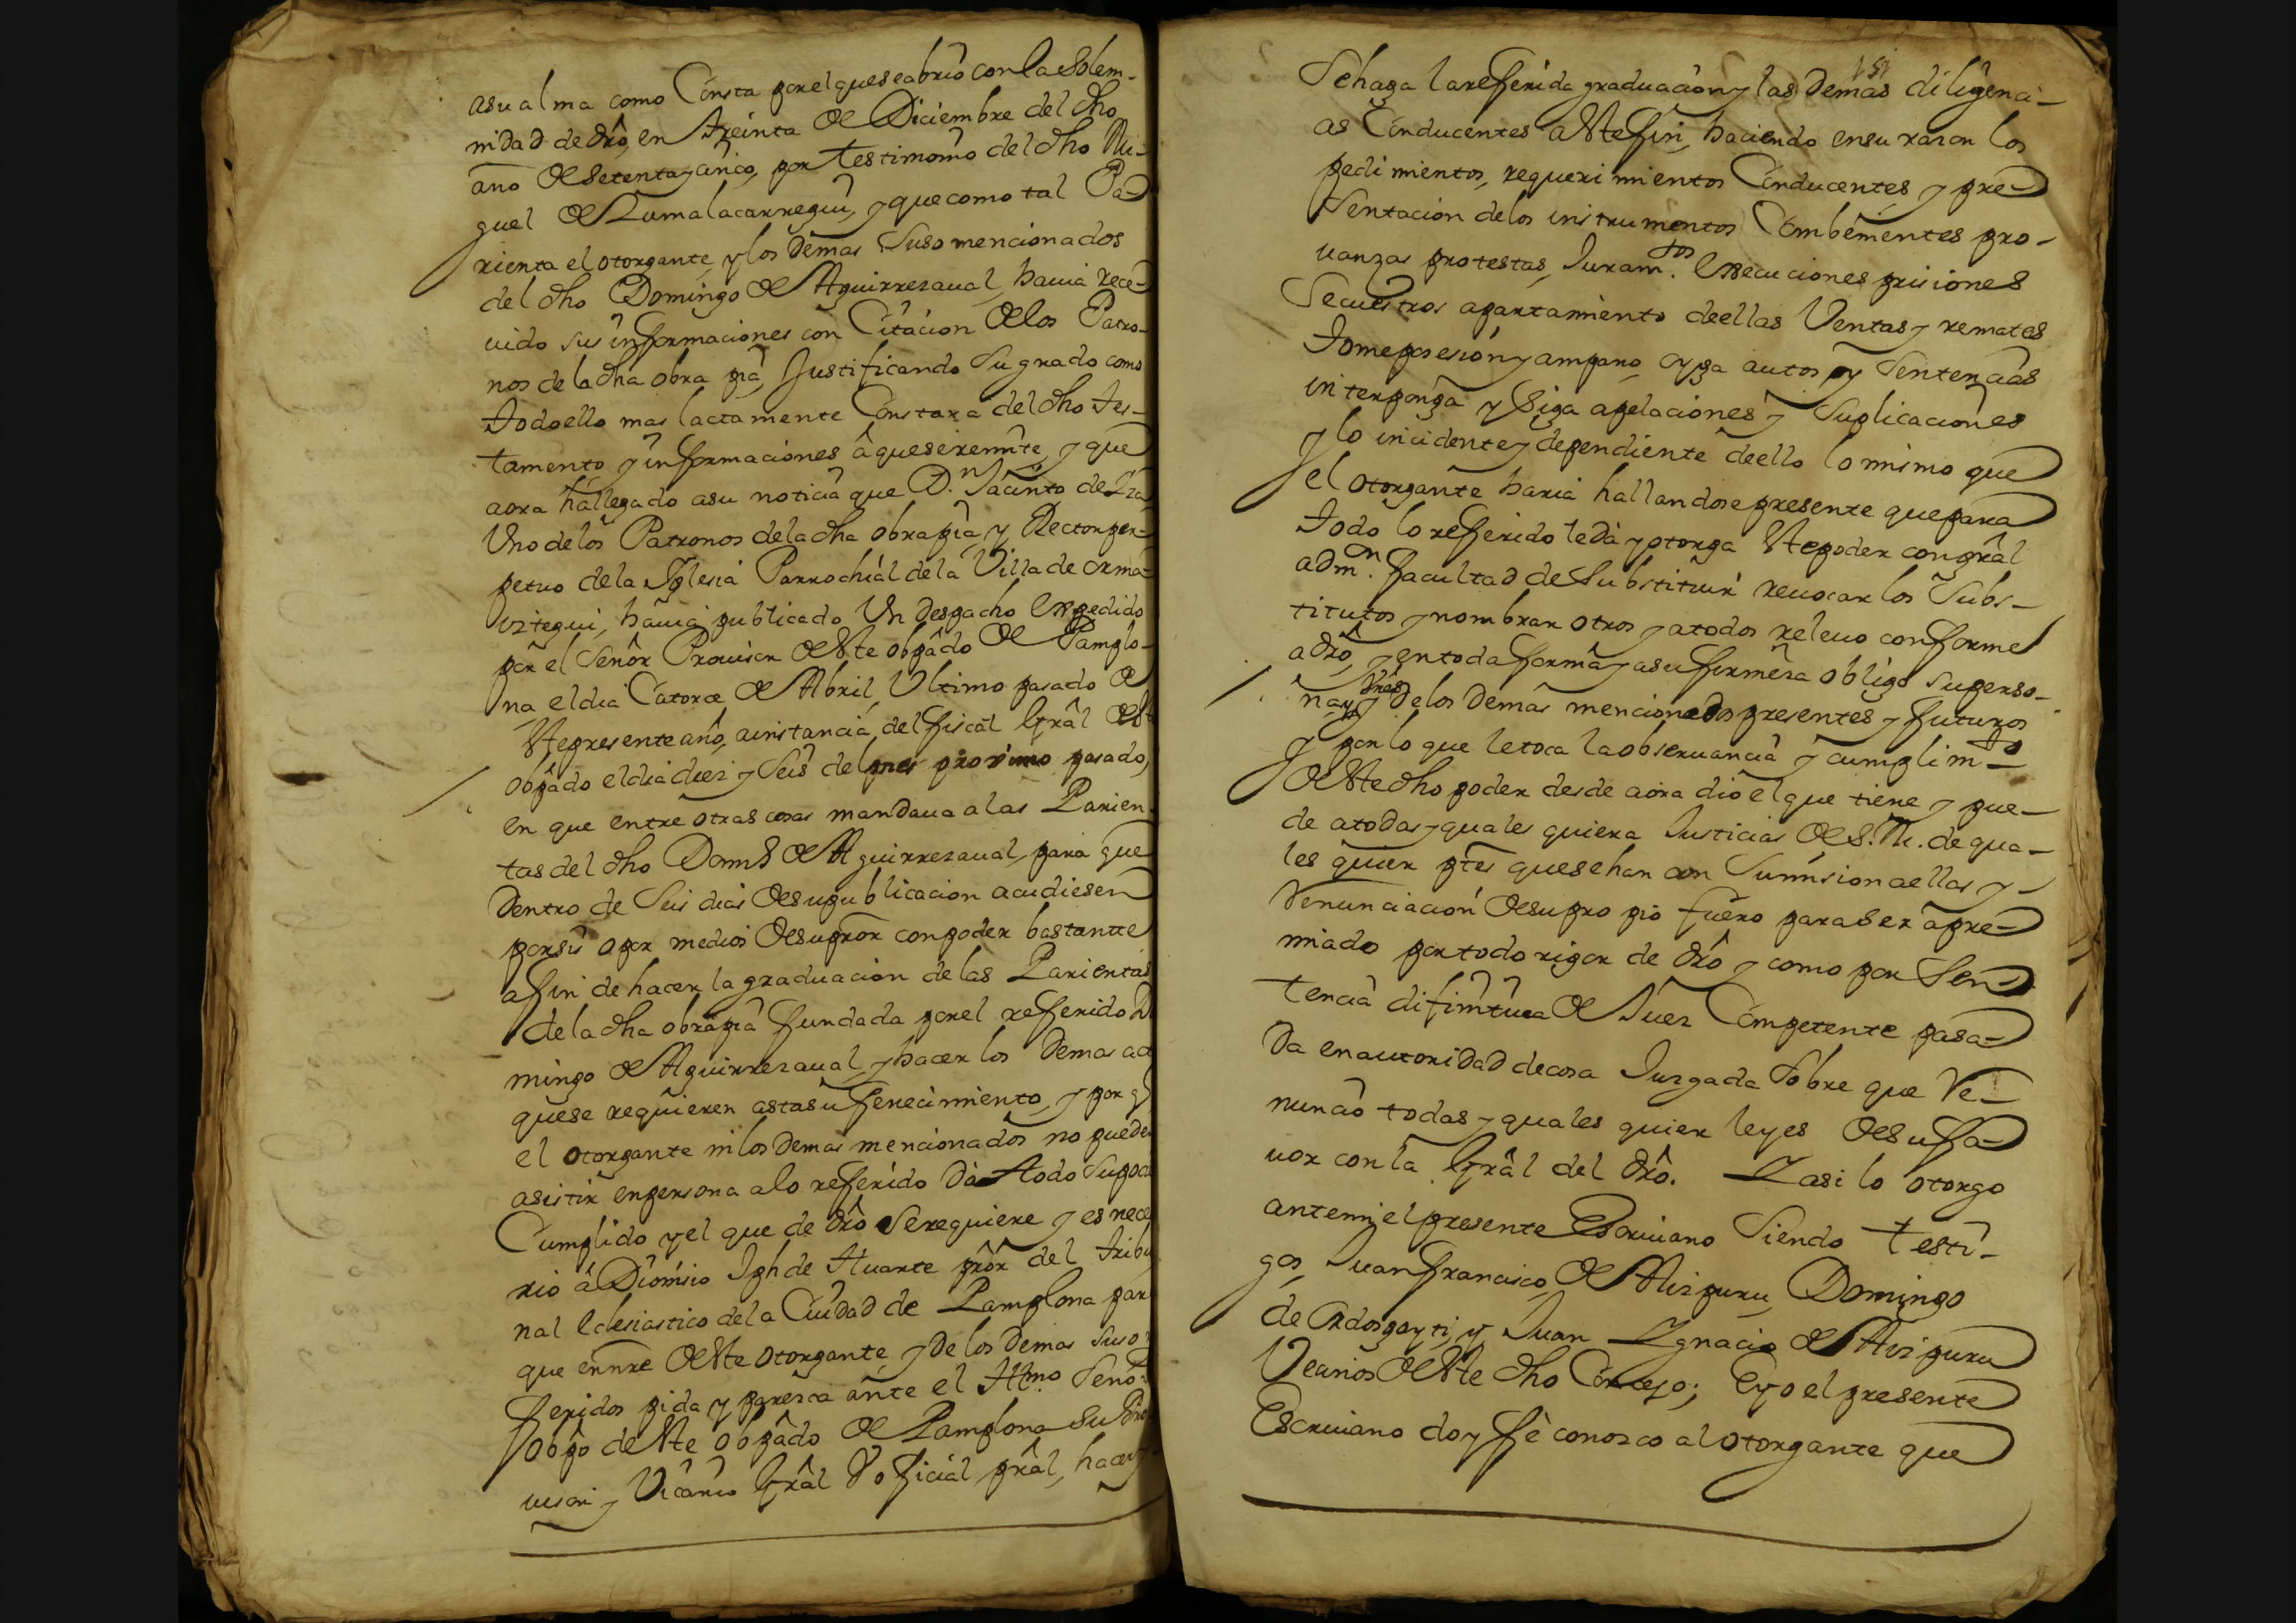 asu alma como Consta por el que se abrio con la Solem-
nidad de dr̂o, en treinta de Diciembre del dho
año de setenta y cinco, por testimonio del dho Mi-
guel de Zumalacarregui, y que como tal Pa-
rienta el otorgante, y los demas suso mencionados
del dho Domingo de Aguirrezaual, hauia rece-
uido sus informaciones con Citacion de los Patro-
nos de la dha obra pia, Justificando su grado como
todo ello mas lactamente Constara del dho tes-
tamento, y informaciones â que se remite, y que
aora ha llegado a su noticia que D.n Jacinto de
Uno de los Patronos de la dha obra pia, y Rector per-
petuo de la Iglesia Parrochial de la Villa de Orma-
iztegui, hauia publicado Un despacho Expedido
por el Señor Prouisor deste obpâdo de Pamplo-
na el dia Catorce de Abril, Ultimo pasado de
este presente año, a instancia, del fiscal Grâl deste
obpâdo el dia diez y seis del mes proximo pasado,
en que entre otras cosas mandaua a las Parien-
tas del dho Dom.o de Aguirrezaual, para que
Dentro de seis dias de su publicacion acudiesen
por si o por medio de su prôr con poder bastante
a fin de hacer la graduacion de las Parientas
de la dha obra pia fundada por el referido Do
mingo de Aguirrezaual, y hacer los demas act
que se requieren asta su fenecimiento, y por q
el otorgante ni los demas mencionados no pueden
asistir en persona a lo referido Dâ todo su pod
Cumplido y el que de dr̂o se requiere y es nece
rio â Dionisio Jph de Huarte prôr del tribu
nal Eclesiastico de la Ciudad de Pamplona par
que en nre deste otorgante, y de los demas suso
feridos pida y paresca ante el Ilmo Señor
Obpo deste obpâdo de Pamplona su Pro
uisor y Vicario Grâl y oficial prâl, hacer
151
Se haga la referida graduacion y las demas diligenci-
as Conducentes a este fin, haciendo en su razon los
pedimientos, requerimientos Conducentes, y pre-
sentacion de los instrumentos Combenientes pro-
uanzas protestas, Juram.tos Execuciones prisiones
Secuestros apartamiento de ellas Ventas y remates
tome posesion y amparo, oyga autos y Sentencias
interponga y siga apelaciones y Suplicaciones
y lo incidente y dependiente de ello lo mismo que
el otorgante haria hallandose presente que para
todo lo referido le dâ y otorga este poder con grâl
adm.n facultad de Substituir reuocar los Subs-
titutos y nombrar otros y a todos releuo conforme
a dr̂o, y en toda forma y a su firmeza obligo su perso-
na y vnes y de los demas mencionados presentes y futuros
y por lo que le toca la obseruancia y cumplim.to
deste dho poder desde aora dio el que tiene y pue-
de a todas y quales quiera Justicias de S. M. de qua-
les quier ptes que sehan con Sumision a ellas y
Renunciacion de su propio fuero para ser apre-
miado por todo rigor de dr̂o y como por Sen-
tencia difinitiua de Juez Competente pasa-
da en autoridad de cosa Juzgada Sobre que Re-
nuncio todas y quales quier leyes de su fa-
uor con la Grâl del dr̂o. Y asi lo otorgo
ante mi el presente Escriuano Siendo testi-
gos, Juan francisco de Aizpuru, Domingo
de Ordosgoyti, y Juan Ygnacio de Aizpuru
Vecinos deste dho Concejo; E yo el presente
Escriuano doy fê conosco al otorgante que